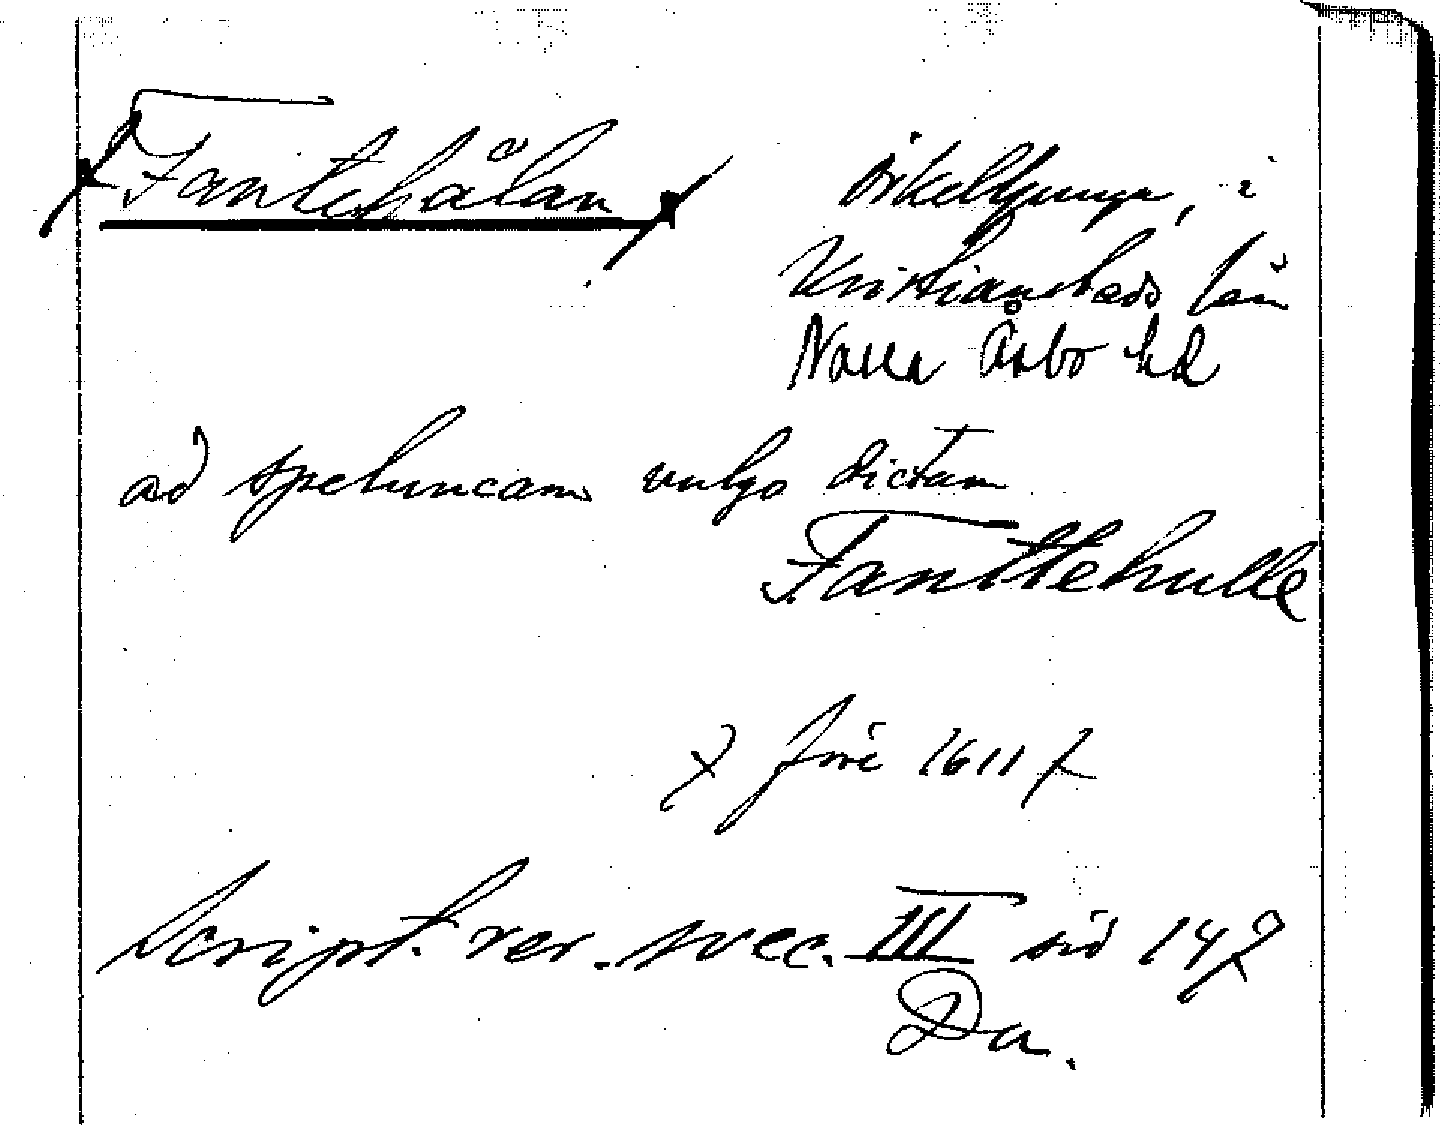 Fantehålan Örkelljunga, i
Kristianstads län
Norra Åsbo hd
ad speluncam vulgo dictam
Fanttehulle
före 1611
Script. rer. svec. III sid 147
Da.